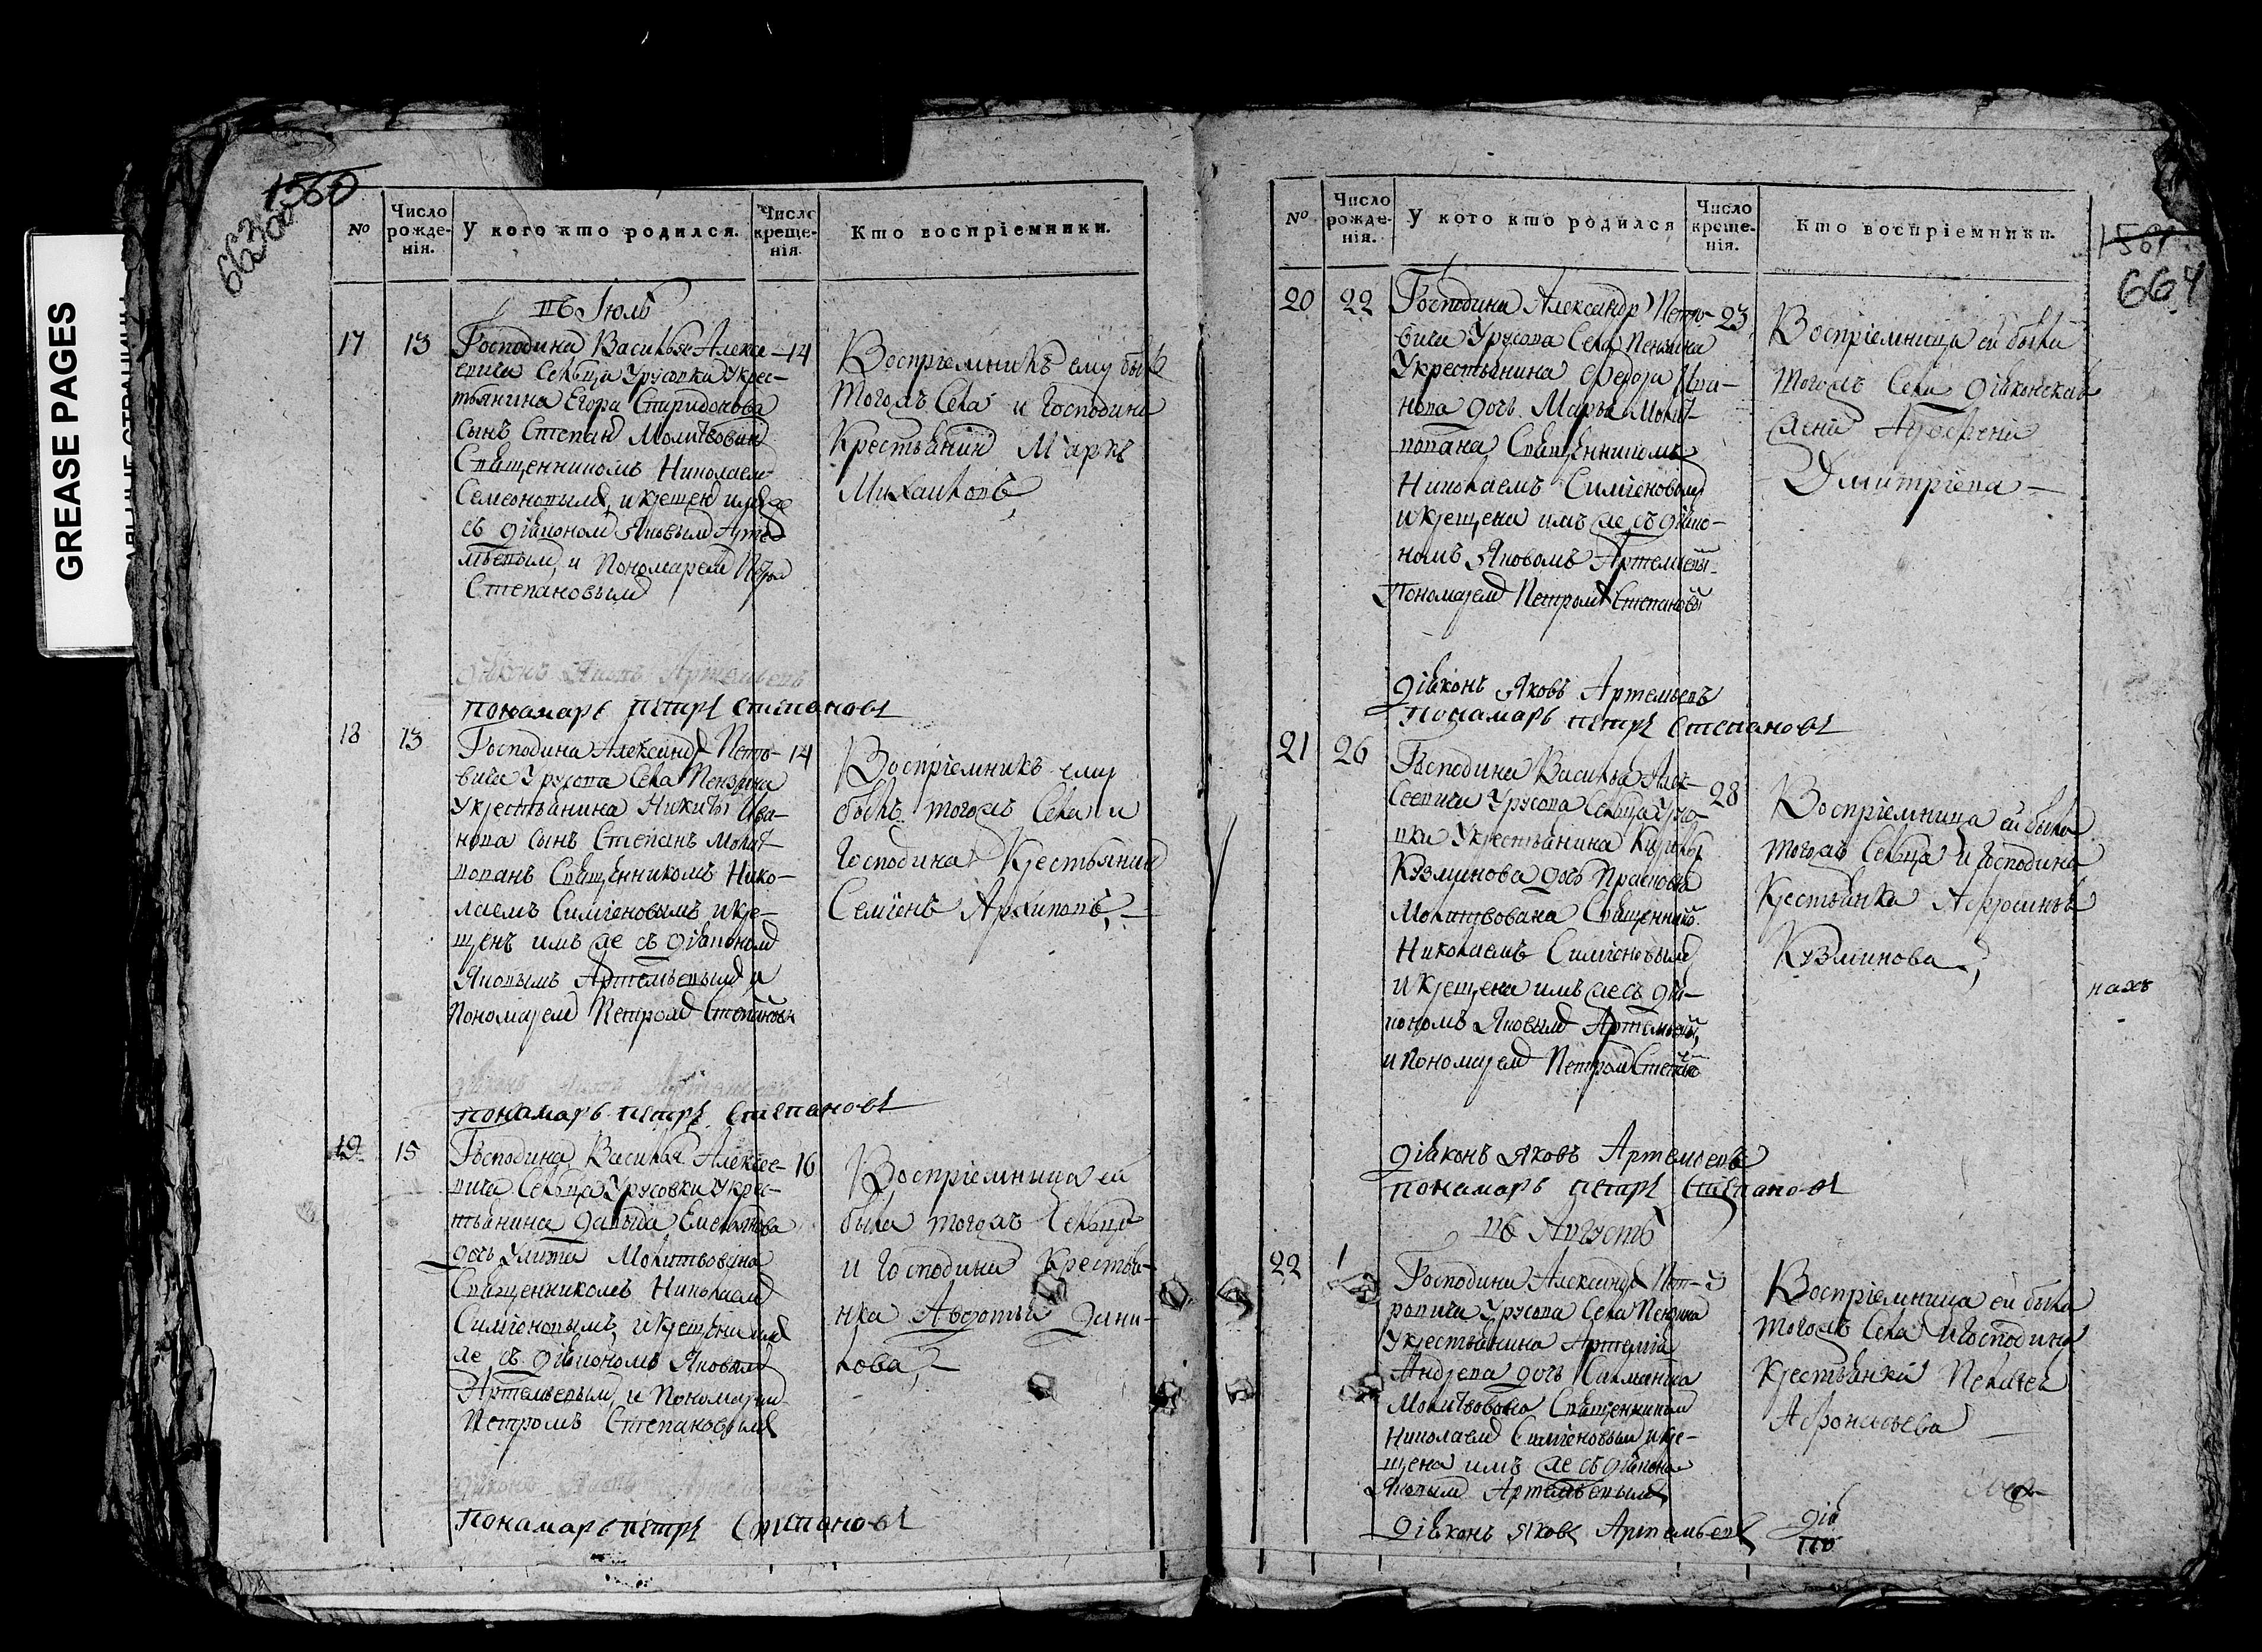 GREASE PAGES
1560
663об
№
Число рожде-нія.
У кого кто родился.
Число креще-нія.
Кто воспріемники.
въ Іюлѣ
17 13 Господина Василья Алексе- 14
евича Сельца Урусовки Укрес-
тьянина Егора Спиридонова
сынъ Степанъ Молитвованъ
Священникомъ Николаемъ
Семеоновымъ, и крещенъ имъ же
съ діакономъ Яковымъ Арте-
мьевымъ, и Пономаремъ Петромъ
Степановымъ
Воспріемникъ ему былъ
тогожъ Села и Господина
Крестьянинъ Маркъ
Михаиловъ,
діаконъ Яковъ Артемьевъ
понамарь петръ степановъ
18 13 Господина Александра Петро- 14
вича Урусова Села Пензина
Укрестьянина Никиты Ива-
нова сынъ Степанъ Молит-
вованъ Священникомъ Нико-
лаемъ Симіеновымъ, икре-
щенъ имъ же съ діакономъ
Яковымъ Артемьевымъ и
Пономаремъ Петромъ Степановы
Воспріемникъ ему
былъ тогожъ Села и
Господина Крестьянинъ
Семіенъ Архиповъ, —
понамарь петръ степановъ
19 15 Господина Василья Алексее- 16
вича Сельца Урусовки Укрес-
тьянина Давыда Емельянова
дочь Улита Молитвована
Священникомъ Николаемъ
Симіеновымъ, икрещена имъ
же съ діакономъ Яковымъ
Артемьевымъ, и Пономаремъ
Петромъ Степановымъ
Воспріемница ей
была тогожъ Сельца
и Господина Крестья-
нка Авдотья Дани-
лова, —
Понамарь петръ Степановъ
№
Число рожде-нія.
У кого кто родился
Число креще-нія.
Кто воспріемники.
1561
664
20 22 Господина Александра Петро- 23
вича Урусова Села Пензина
Укрестьянина Федора Ива-
нова дочь Марья Молит-
вована Священникомъ
Николаемъ Симіеновымъ
икрещена имъ же съ діако-
номъ Яковомъ Артемьевы
Пономаремъ Петромъ Степановы
Воспріемница ей была
тогожъ Села діаконская
жена
Дмитріева —
діаконъ Яковъ Артемьевъ
понамарь петръ степановъ
21 26 Господина Василья Алек-
сеевича Урусова Сельца Урусо- 28
вки Укрестьянина Кирилы
Кузминова дочь Прасковья
Молитвована Священнико.
Николаемъ Симіеновымъ
икрещена имъ же съ діа-
кономъ Яковымъ Артемьевы,
и Пономаремъ Петромъ Степано
Воспріемница ей была
тогожъ Сельца и Господина
Крестьянка Афросинья
Кузминова,
нахъ
діаконъ Яковъ Артемьевъ
понамарь петръ степановъ
въ Августѣ
22 1 Господина Александра Пет- 3
ровича Урусова Села Пензина
Укрестьянина Артемія
Андрева дочь
Молитвована Священникомъ
Николаемъ Симіеновымъ икре-
щена имъ же съ діакона
Яковым Артемьевымъ
Воспріемница ей была
тогожъ Села и Господина
Крестьянка Пелагея
Афонасьева —
Діаконъ Яковъ Артемьевъ
діа
по